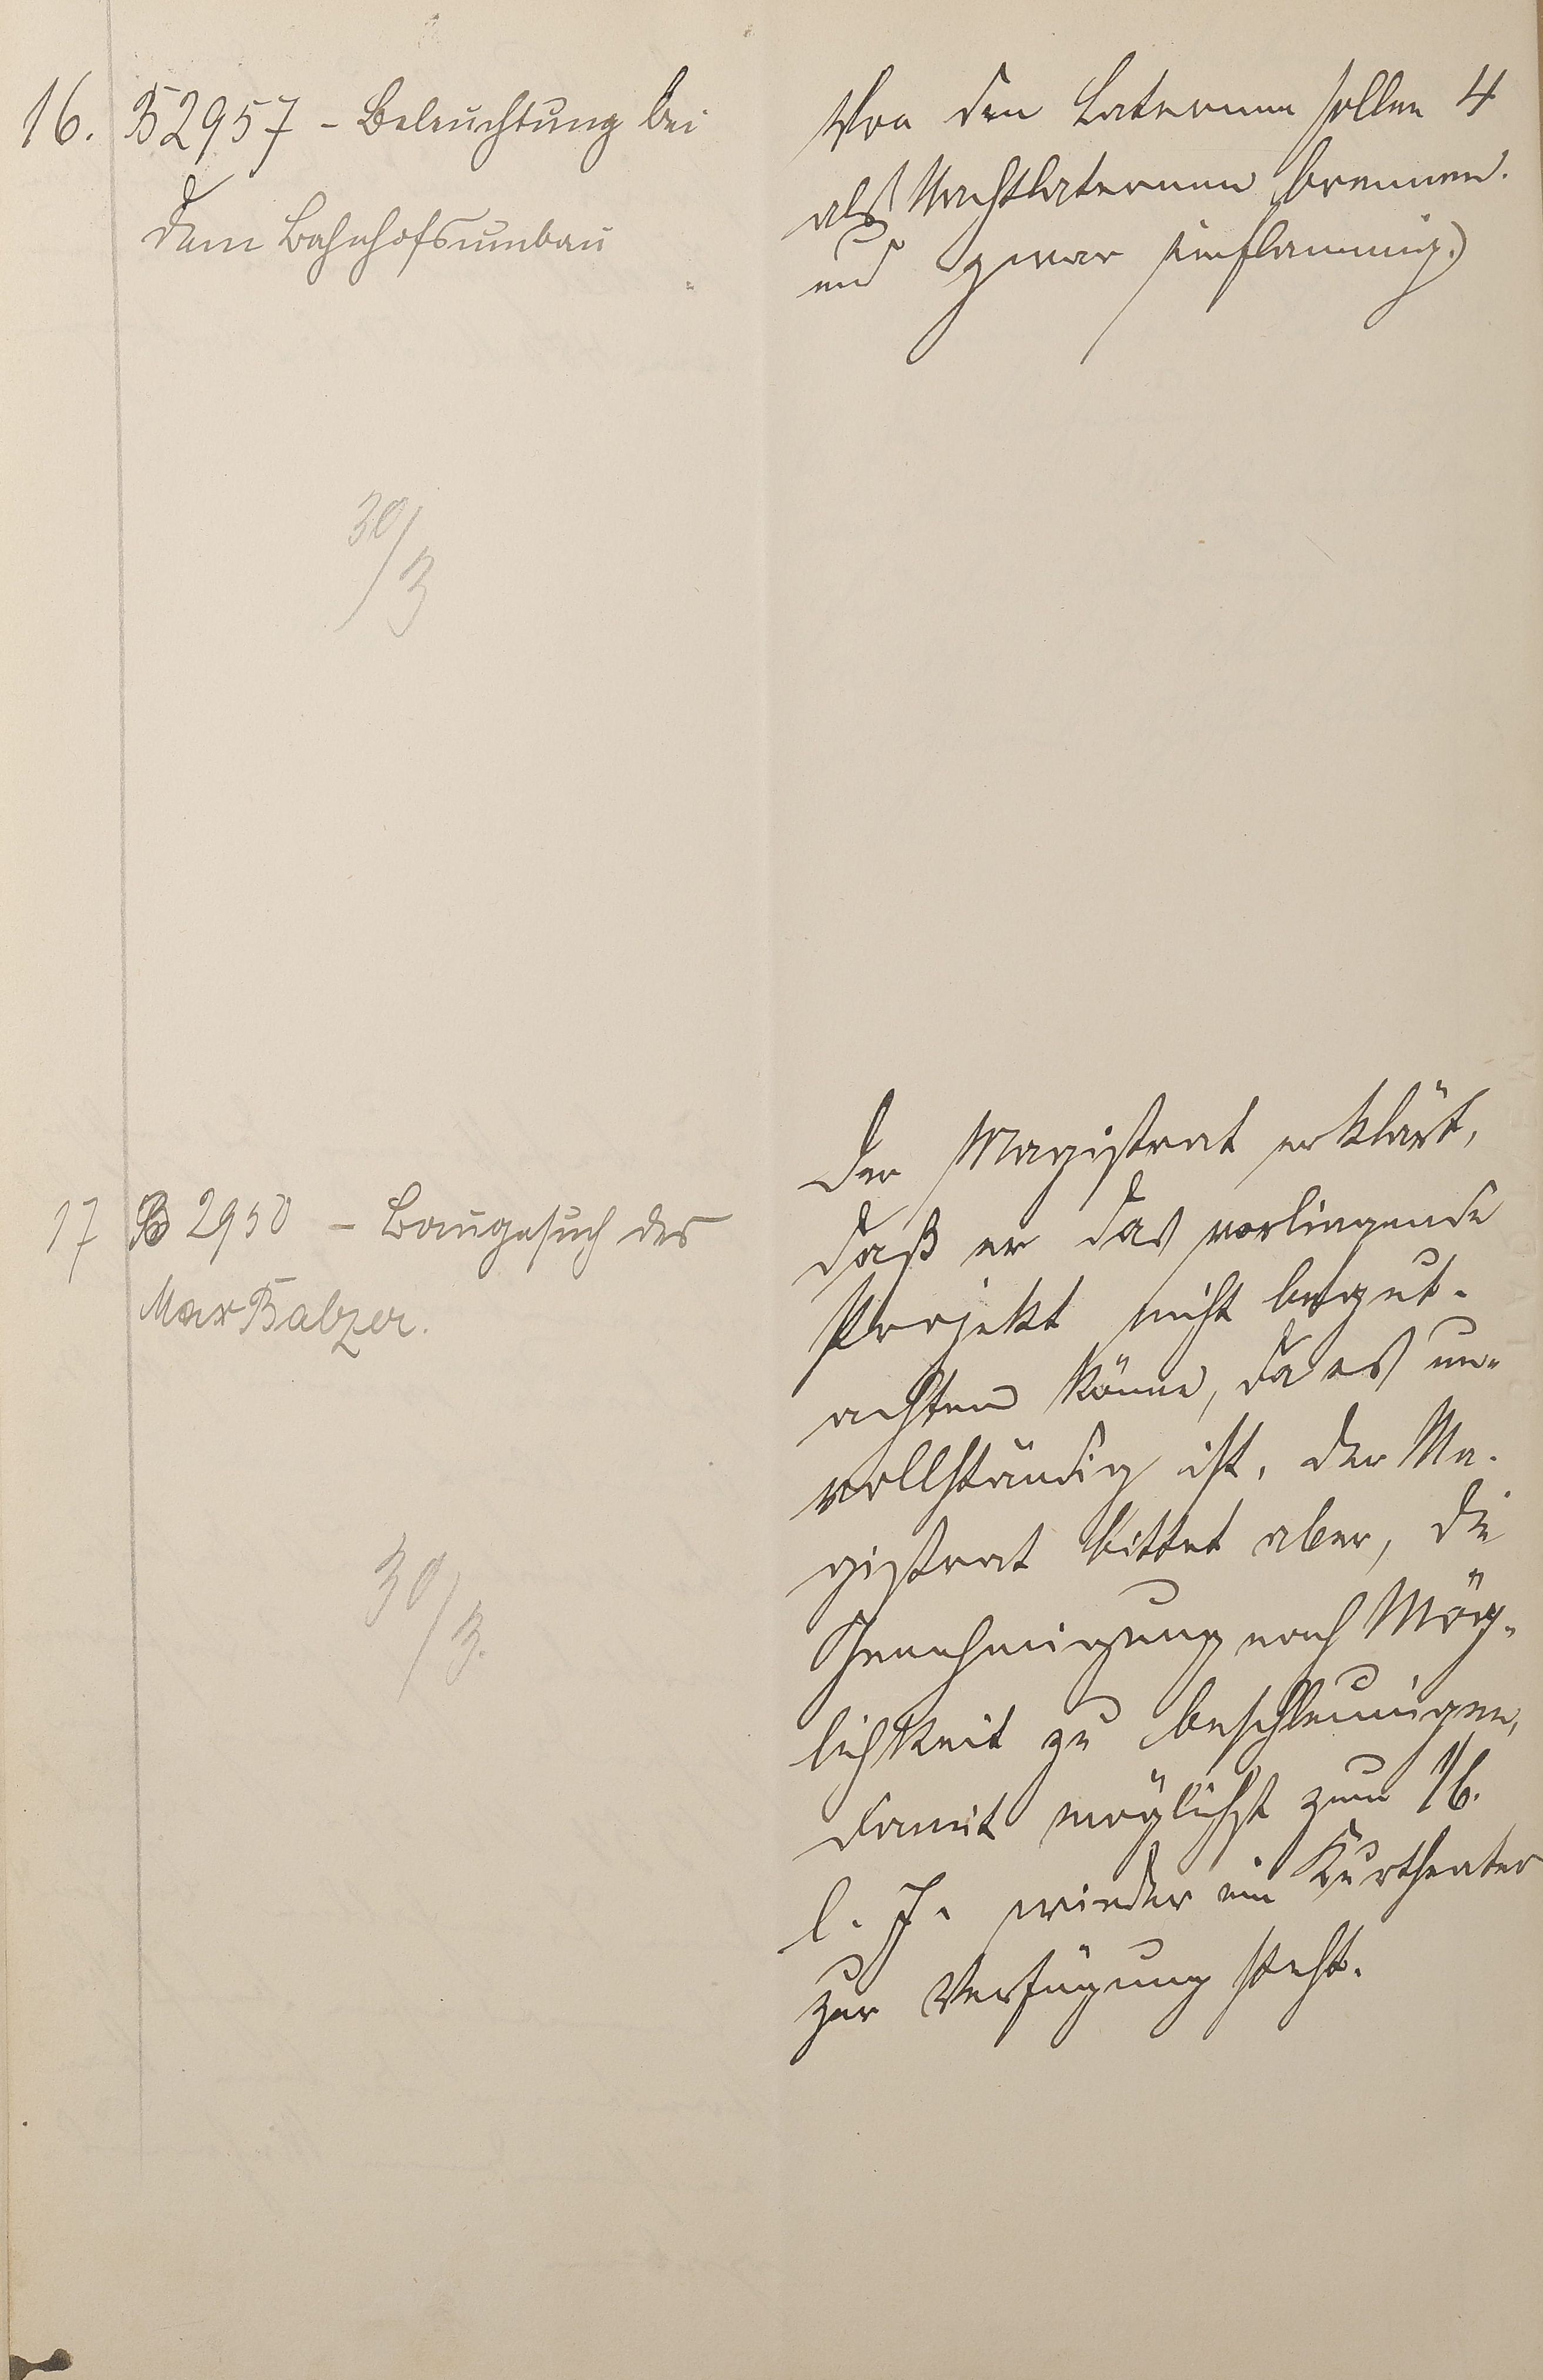 16. B 2957 - Beleuchtung bei
dem Bahnhofsumbau
Von den Laternen sollen 4
als Nachtlaternen brennen.
und zwar einflammig.)
30/3
17 B 2950 - Baugesuch des
Max Balzer.
30/3.
Der Magistrat erklärt,
daß er das vorliegende
Projekt nicht begut-
achten könne, da es un-
vollständig ist. Der Ma-
gistrat bittet aber, die
Genehmigung nach Mög-
lichkeit zu beschleunigen,
damit möglichst zum 1/6.
l. J. wieder ein Kurtheater
zur Verfügung steht.